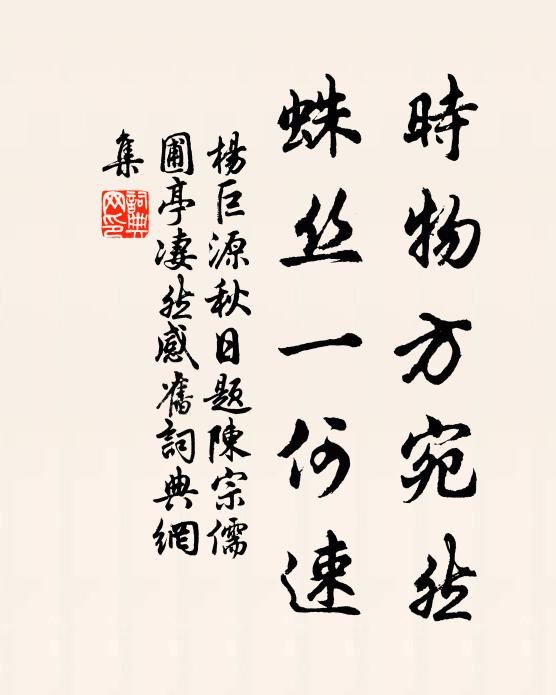 時物方宛然
蛛丝一何速
楊巨源秋日题陳宗儒
圃亭凄然感舊詞典網
集
詞典
网印